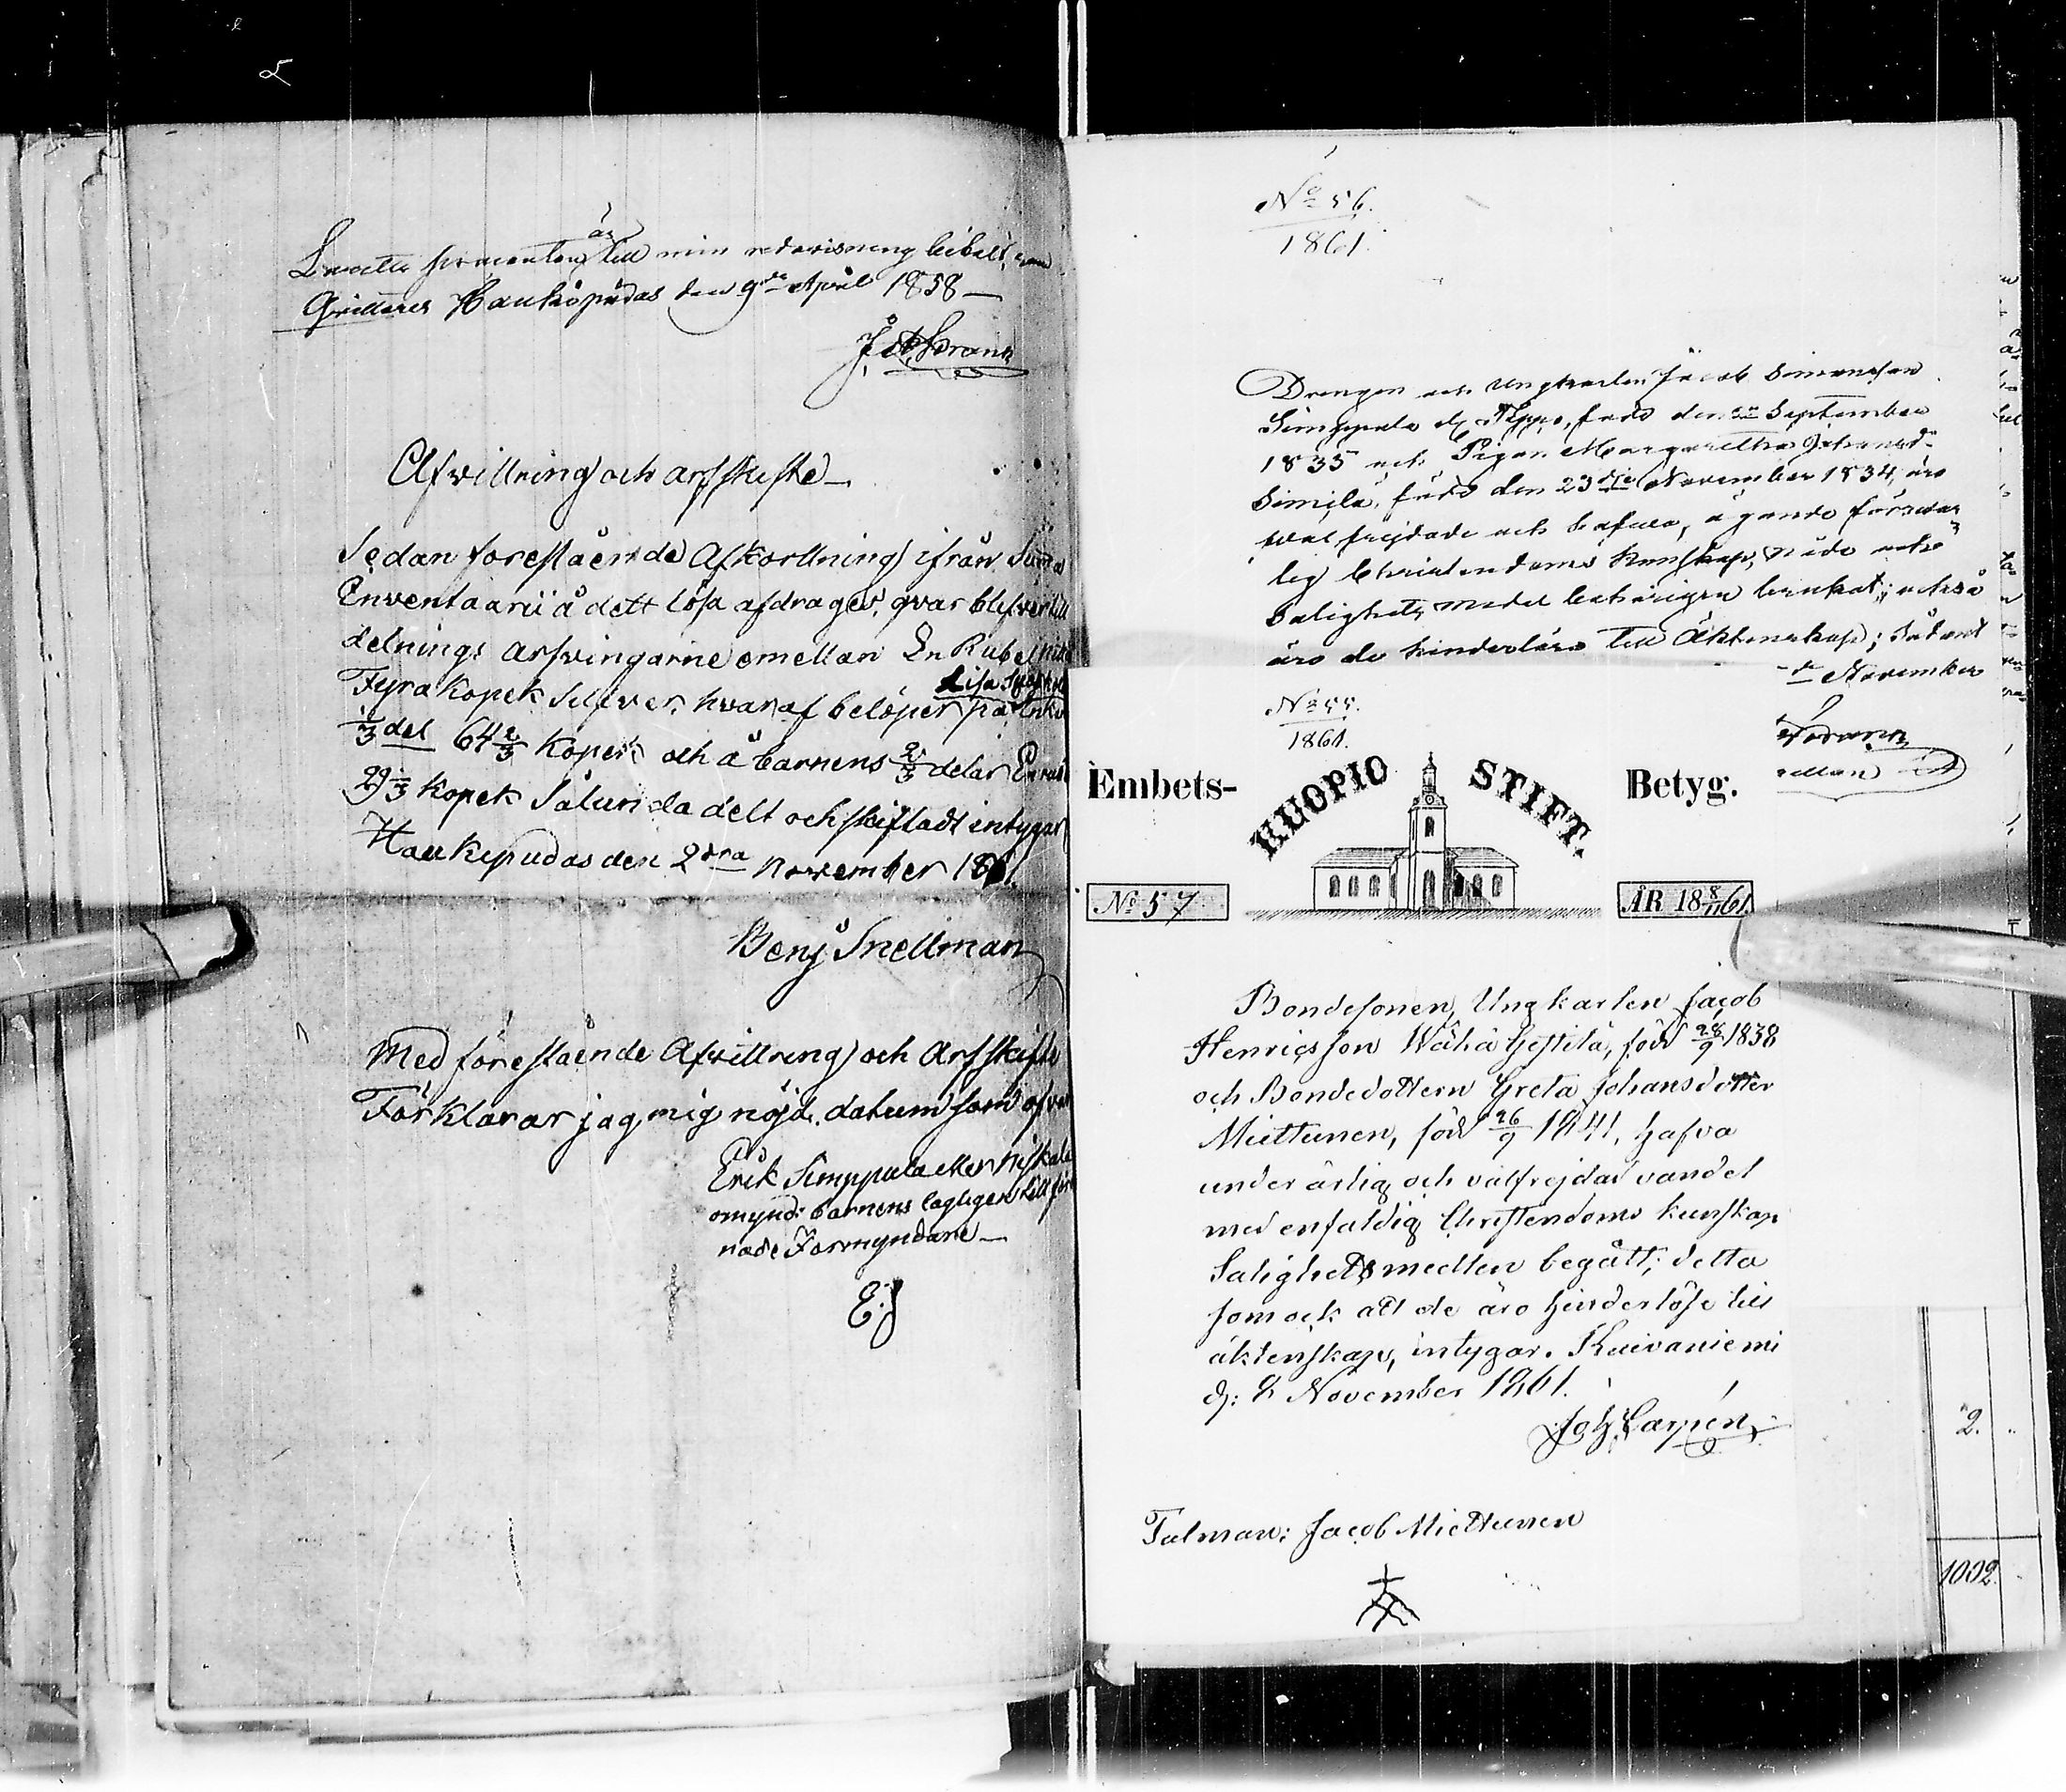 till min redovisning blifvit
Qvitteres Haukipudas den 9de April 1858
Afvittring och arfskifte
Sedan förestående Afkortning ifrån
Enventaarii å dett lösa afdrages, qvar blifver till
delnings arfvingarne emellan En Rubel
Lisa
Fyra kopek Silfver, hvaraf belöper på
1/3 del 64 2/3 Kopek och å barnens 2/3 delar En
29 1/3 kopek Sålunda delt och skiftadt intygar
Haukipudas den 2dra November 1861.
Benj Snellman
Med förestående Afvittring och Arfskifte
Förklarar jag mig nöjd, datum som ofvan
Erik Simppula eller Niskala
omynd: barnens lagligen till för
nade Förmyndare
E:S
No 56.
1861.
Drengen och Ungkarlen Jacob Simonsson
Simppula född den September
1835 och Pigan Margaretha Johansd:
Similä, född den 23 November 1834, äro
välfrejdade och ägande försvar
lig Christendoms kunskap, både och
Salighets medel behörigen brukat; också
äro de hinderlöse till Äktenskap; sådant
November
No 55.
1861.
Embets- KUOPIO STIFT. Betyg.
No 57 ÅR 18 8/11 61.
Bondesonen, Ungkarlen Jacob
Henricsson Wähä Hestilä, född 28/9 1838
och Bondedottern Greta Johansdotter
Miettunen, född 26/9 1841, hafva
under ärlig och välfrejdad vandel
med enfaldig Christendoms kunskap
Salighetsmedlen begått; detta
som ock att de äro hinderlöse till
äktenskap, intygar. Kuivaniemi
d: 8 November 1861.
Joh Carpén
Talman: Jacob Miettunen
2.
1002